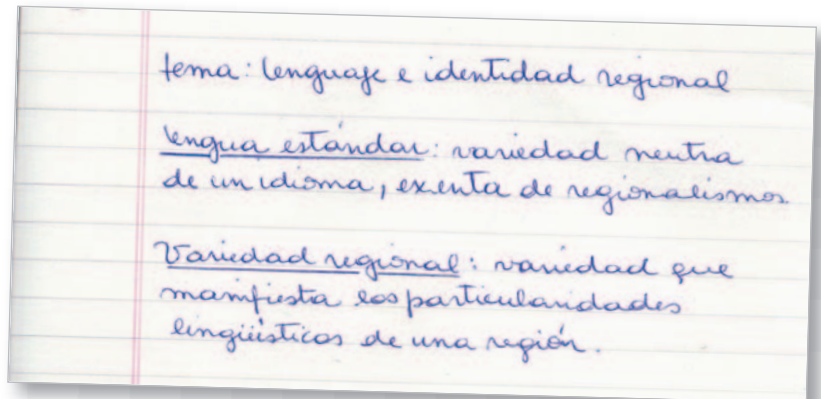 tema: lenguaje e identidad regional
lengua estándar: variedad neutra
de un idioma, exenta de regionalismos
Variedad regional: variedad que
manifiesta las particularidades
lingüísticas de una región.